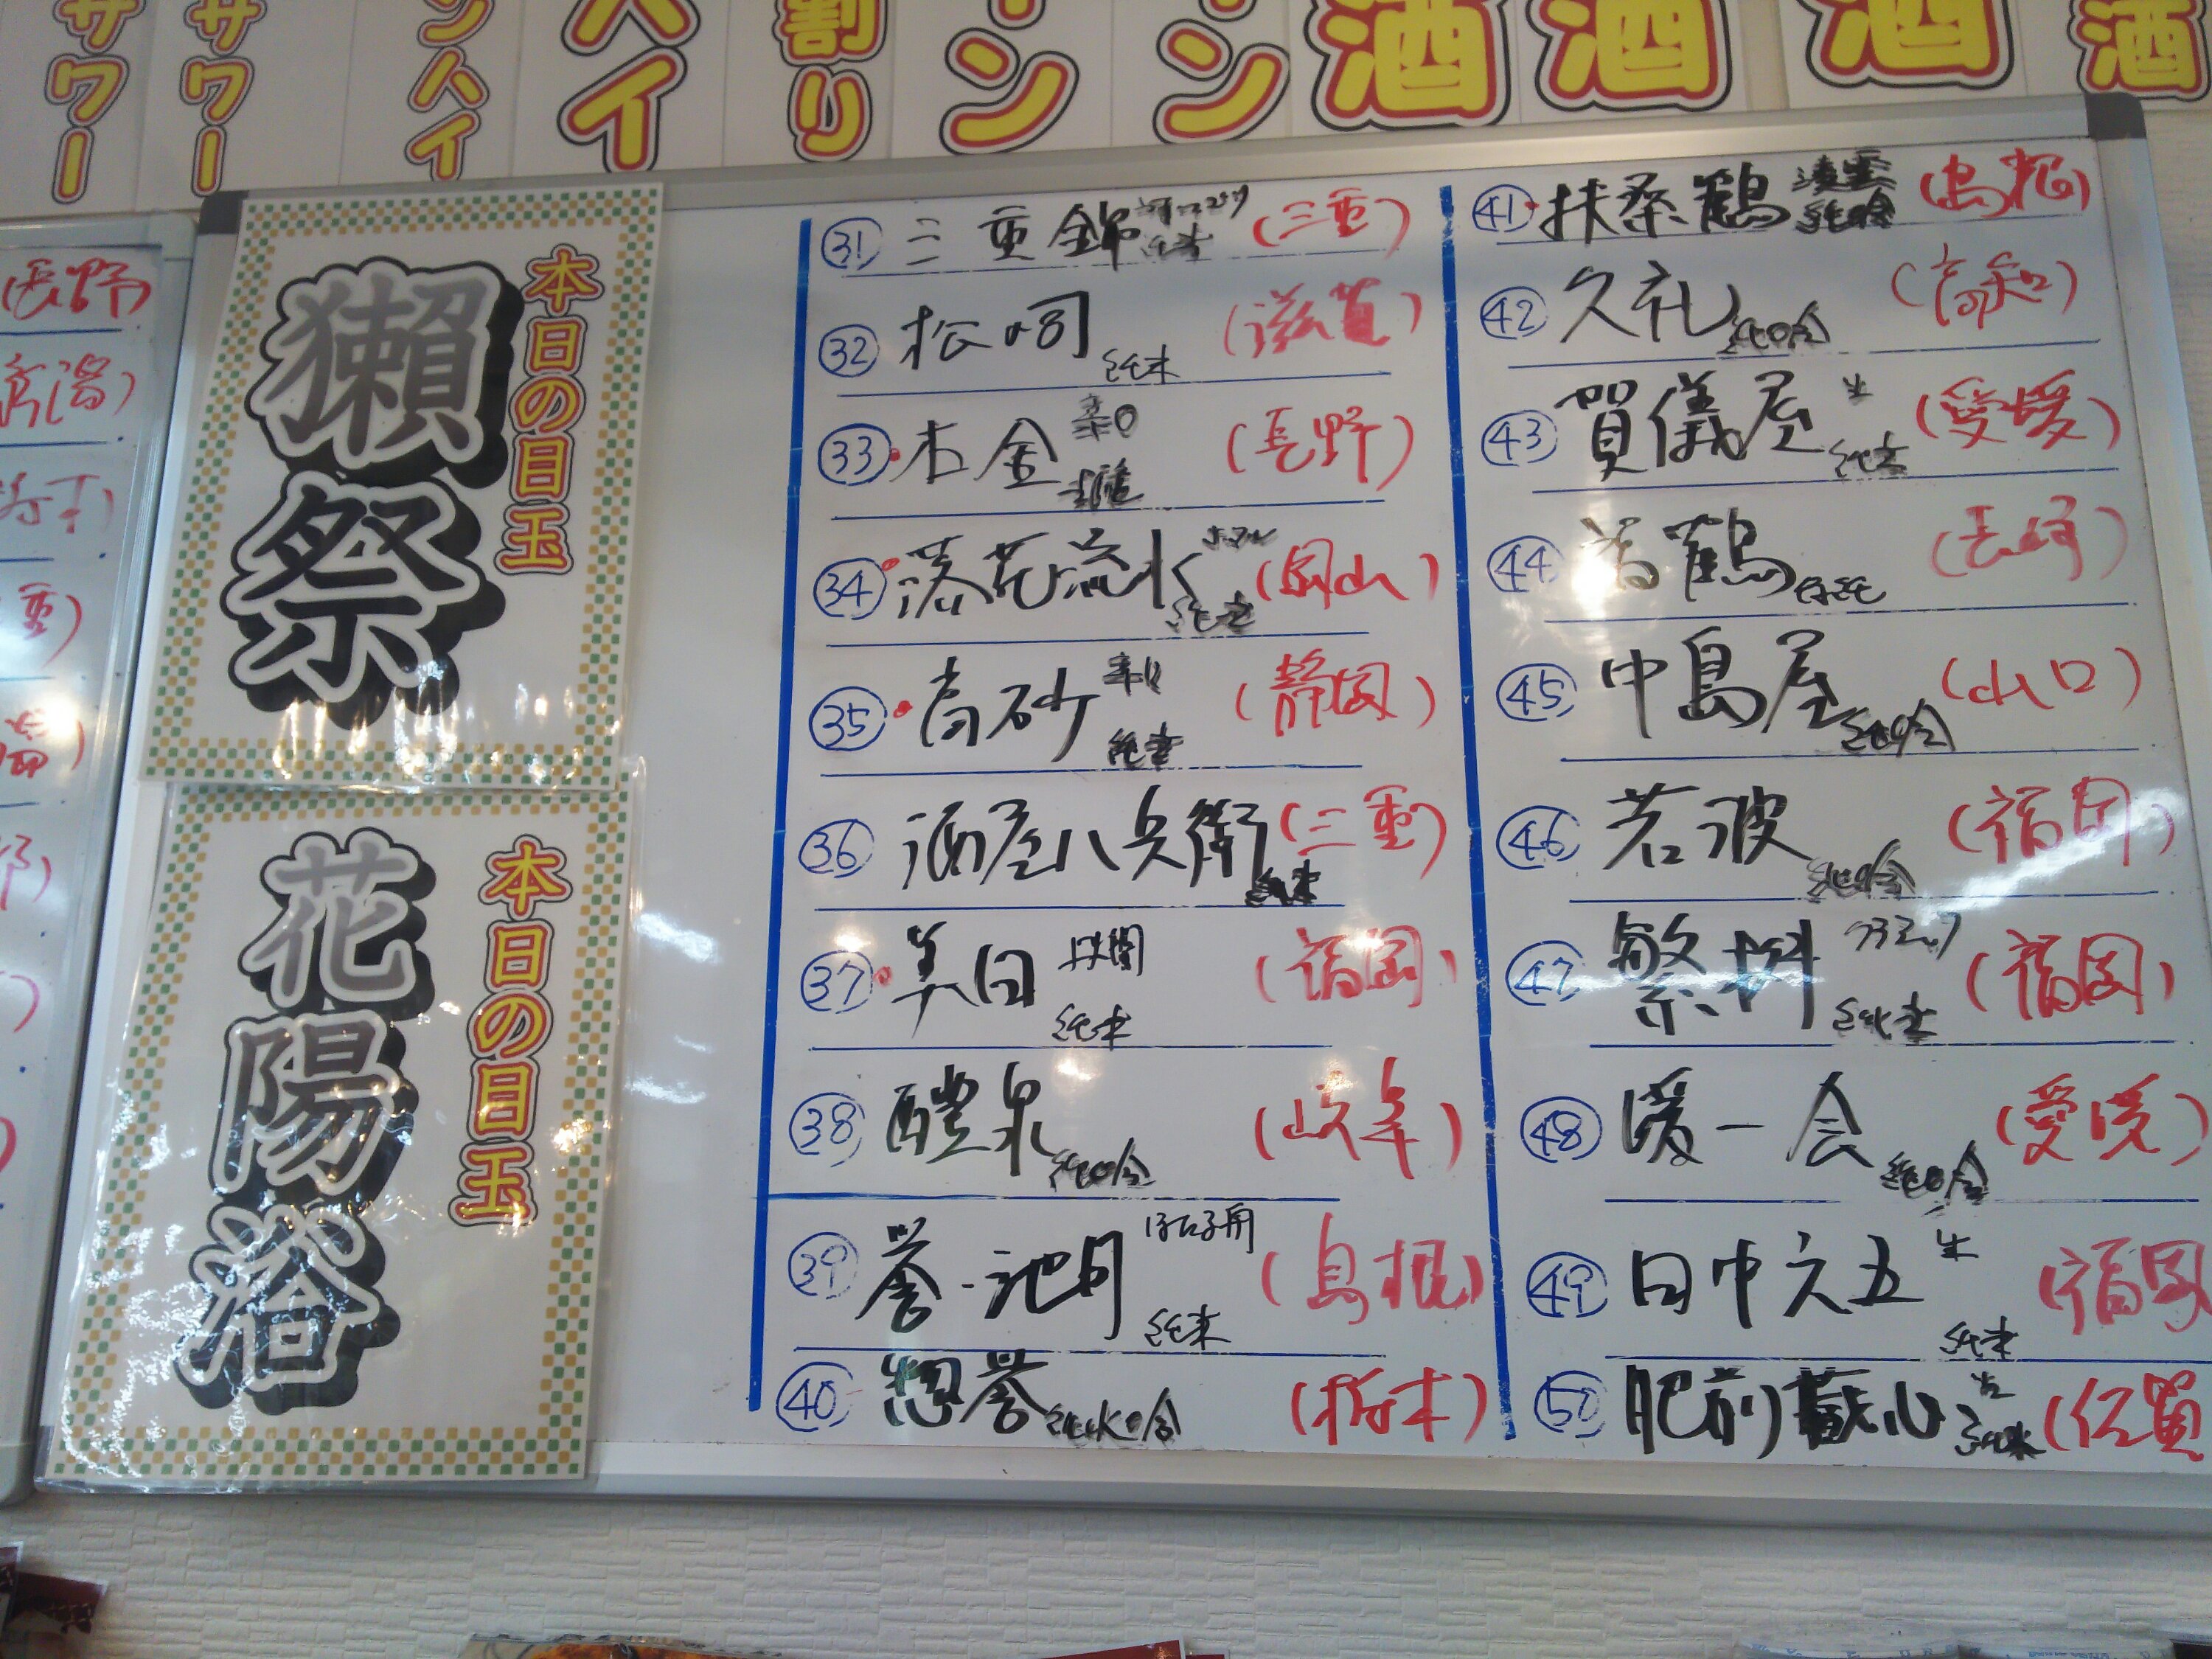 サワー
サワー
ンハイ
ハイ
割り
ン
ン
酒
酒
酒
酒
長野
新潟)
重)
本日の目玉
獺祭
本日の目玉
花陽浴
㉛ 三重錦 純米 (三重)
㉜ 松の司 純米 (滋賀)
㉝ 本金 辛口 (長野)
㉞ 落花流水 純米 (岡山)
㉟ 高砂 辛口 純米 (静岡)
㊱ 酒屋八兵衛 純米 (三重)
㊲ 美田 純米 (福岡)
㊳ 醴泉 純吟 (岐阜)
㊴ 誉池月 純米 (島根)
㊵ 惣誉 純米吟 (栃木)
㊶ 扶桑鶴 純吟 (島根)
㊷ 久礼 純吟 (高知)
㊸ 賀儀屋 生 純米 (愛媛)
㊹ 鶴 (長崎)
㊺ 中島屋 純吟 (山口)
㊻ 若波 純吟 (福岡)
㊼ 繁桝 クラシック 純米 (福岡)
㊽ 媛一会 純吟 (愛媛)
㊾ 田中六五 生 純米 (福岡)
㊿ 肥前蔵心 純米 (佐賀